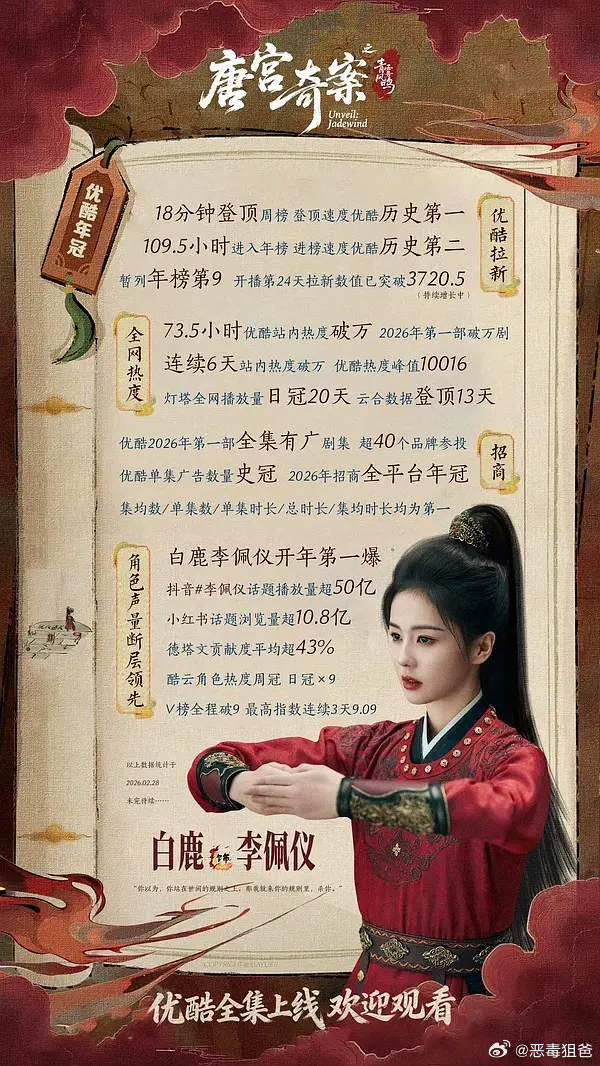 唐宫奇案之
青雾风鸣
Unveil:
Jadewind
优酷年冠
18分钟登顶周榜 登顶速度优酷历史第一
109.5小时进入年榜 进榜速度优酷历史第二
暂列年榜第9 开播第24天拉新数值已突破3720.5
(持续增长中)
优酷拉新
全网热度
73.5小时优酷站内热度破万 2026年第一部破万剧
连续6天站内热度破万 优酷热度峰值10016
灯塔全网播放量日冠20天 云合数据登顶13天
优酷2026年第一部全集有广剧集 超40个品牌参投
优酷单集广告数量史冠 2026年招商全平台年冠
集均数/单集数/单集时长/总时长/集均时长均为第一
招商
角色声量断层领先
白鹿李佩仪开年第一爆
抖音#李佩仪话题播放量超50亿
小红书话题浏览量超10.8亿
德塔文贡献度平均超43%
酷云角色热度周冠 日冠×9
V榜全程破9 最高指数连续3天9.09
以上数据统计于
2026.02.28
未完待续……
白鹿 饰 李佩仪
"你以为，你站在世间的规则之上。那我就来你的规则里，杀你。"
优酷全集上线 欢迎观看
@恶毒狙爸